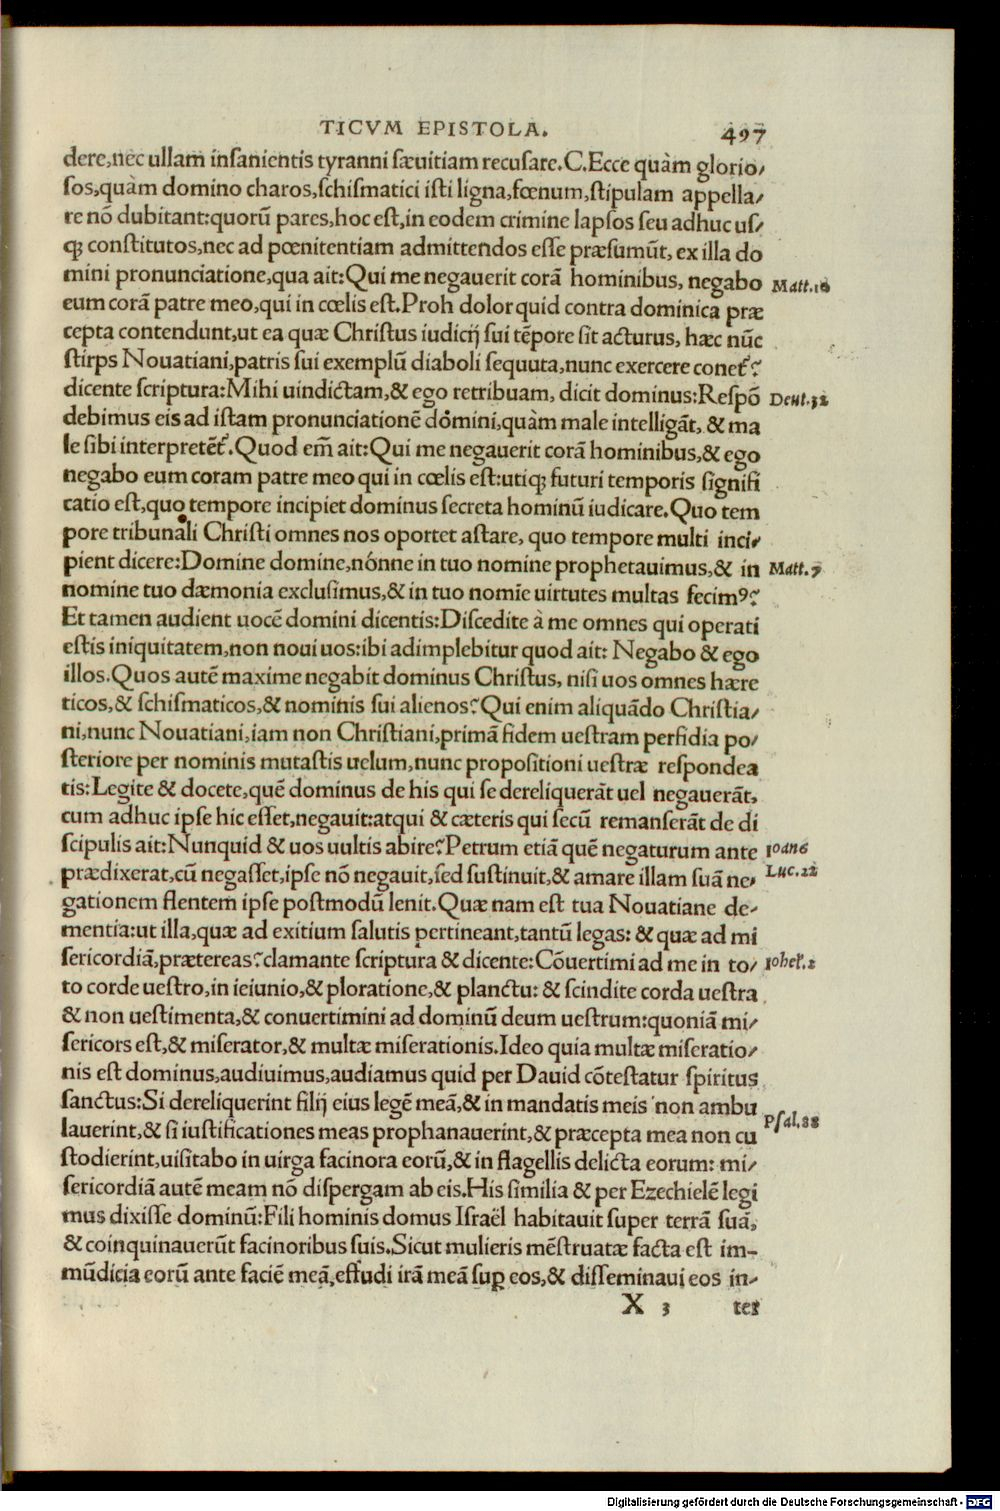 TICVM EPISTOLA. 497
dere,nec ullam insanientis tyranni sæuitiam recusare.C.Ecce quàm glorio/
sos,quàm domino charos,schismatici isti ligna,fœnum,stipulam appella/
re nō dubitant:quorū pares,hoc est,in eodem crimine lapsos seu adhuc us/
qꝫ constitutos,nec ad pœnitentiam admittendos esse præsumūt, ex illa do
mini pronunciatione,qua ait:Qui me negauerit corā hominibus, negabo Matt.10
eum corā patre meo,qui in cœlis est.Proh dolor quid contra dominica præ
cepta contendunt,ut ea quæ Christus iudicij sui tēpore sit acturus, hæc nūc
stirps Nouatiani,patris sui exemplū diaboli sequuta,nunc exercere conet᷑?
dicente scriptura:Mihi uindictam,& ego retribuam, dicit dominus:Respō Deut.32
debimus eis ad istam pronunciationē domini,quàm male intelligāt, & ma
le sibi interpretēt᷑.Quod em̄ ait:Qui me negauerit corā hominibus,& ego
negabo eum coram patre meo qui in cœlis est:utiqꝫ futuri temporis signifi
catio est,quo tempore incipiet dominus secreta hominū iudicare.Quo tem
pore tribunali Christi omnes nos oportet astare, quo tempore multi inci/
pient dicere:Domine domine,nónne in tuo nomine prophetauimus,& in Matt.7
nomine tuo dæmonia exclusimus,& in tuo nomīe uirtutes multas fecimꝰ?
Et tamen audient uocē domini dicentis:Discedite à me omnes qui operati
estis iniquitatem,non noui uos:ibi adimplebitur quod ait: Negabo & ego
illos.Quos autē maxime negabit dominus Christus, nisi uos omnes hære
ticos,& schismaticos,& nominis sui alienos?Qui enim aliquādo Christia/
ni,nunc Nouatiani,iam non Christiani,primā fidem uestram perfidia po/
steriore per nominis mutastis uelum,nunc propositioni uestræ respondea
tis:Legite & docete,quē dominus de his qui se dereliquerāt uel negauerāt,
cum adhuc ipse hic esset,negauit:atqui & cæteris qui secū remanserāt de di
scipulis ait:Nunquid & uos uultis abire?Petrum etiā quē negaturum ante Ioan6
prædixerat,cū negasset,ipse nō negauit,sed sustinuit,& amare illam suā ne/ Luc.22
gationem flentem ipse postmodū lenit.Quæ nam est tua Nouatiane de/
mentia:ut illa,quæ ad exitium salutis ꝑtineant,tantū legas: & quæ ad mi
sericordiā,prætereas?clamante scriptura & dicente:Cōuertimi ad me in to/ Iohel.2
to corde uestro,in ieiunio,& ploratione,& planctu: & scindite corda uestra
& non uestimenta,& conuertimini ad dominū deum uestrum:quoniā mi/
sericors est,& miserator,& multæ miserationis.Ideo quia multæ miseratio/
nis est dominus,audiuimus,audiamus quid per Dauid cōtestatur spiritus
sanctus:Si dereliquerint filij eius legē meā,& in mandatis meis non ambu
lauerint,& si iustificationes meas prophanauerint,& præcepta mea non cu Psal.88
stodierint,uisitabo in uirga facinora eorū,& in flagellis delicta eorum: mi/
sericordiā autē meam nō dispergam ab eis.His similia & per Ezechielē legi
mus dixisse dominū:Fili hominis domus Israël habitauit super terrā suā,
& coinquinauerūt facinoribus suis.Sicut mulieris mēstruatæ facta est im-
mūdicia eorū ante faciē meā,effudi irā meā suꝑ eos,& disseminaui eos in/
X 3 ter
Digitalisierung gefördert durch die Deutsche Forschungsgemeinschaft - DFG